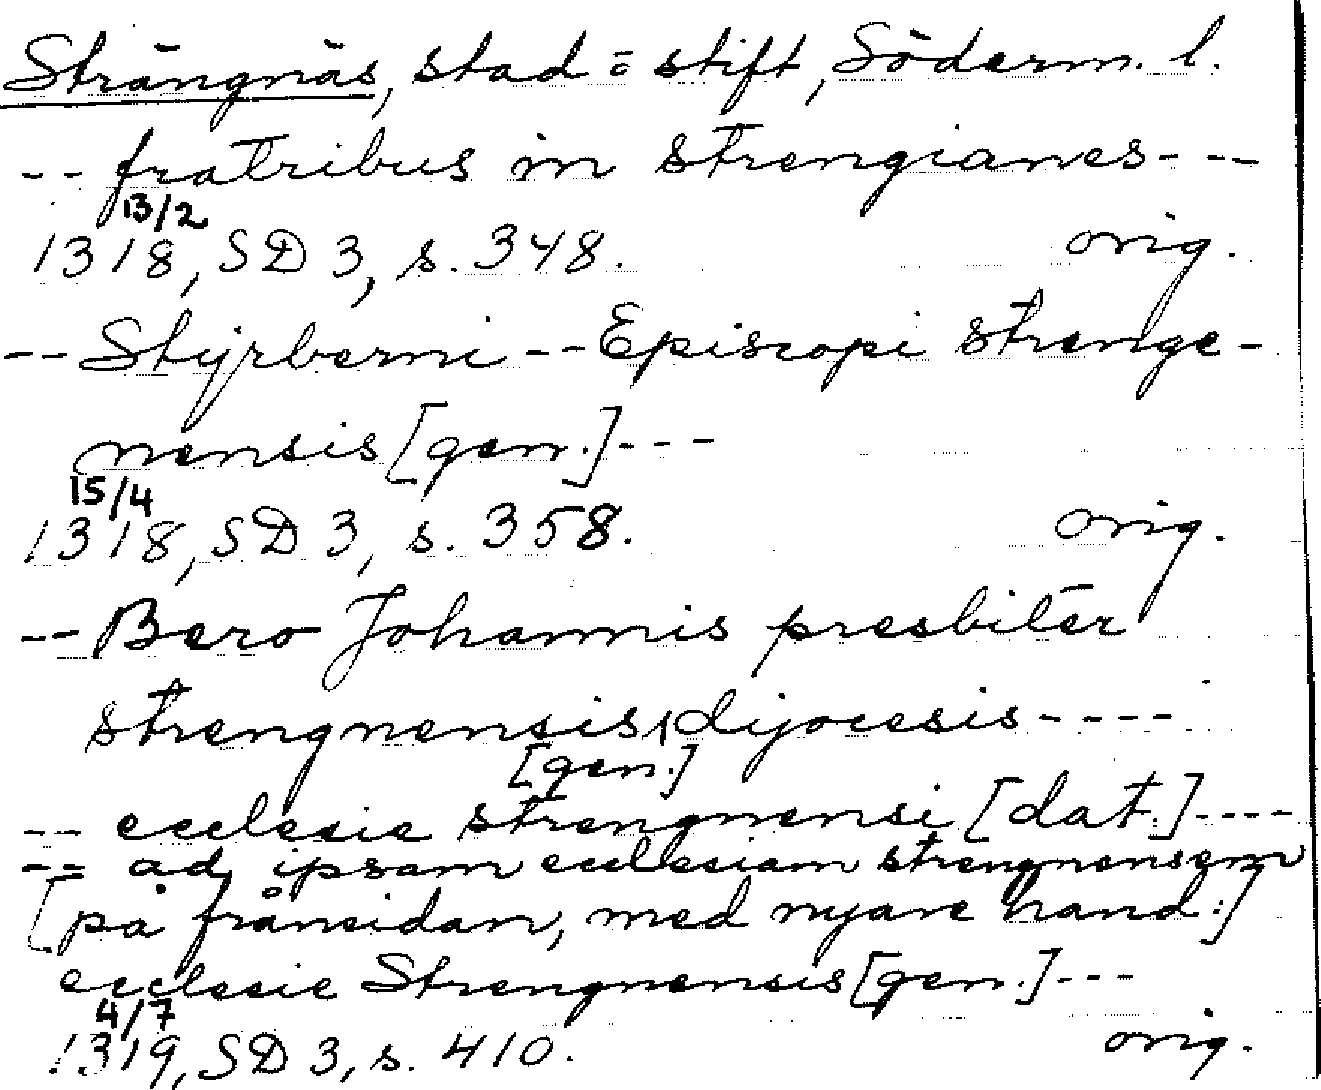 Strängnäs, stad = stift, Söderm. l.
-- fratribus in strengianes- --
13/2
1318, SD 3, s. 348. orig.
-- Stýrberni -- Episcopi strenge-
nensis [gen.]---
15/4
1318, SD 3, s. 358. orig.
-- Bero Johannis presbiter
strengnensis dijocesis----
[gen.]
-- ecclesie strengnensi [dat.]----
-- ad ipsam ecclesiam strengnensem
[på frånsidan, med nyare hand:]
ecclesie Strengnensis [gen.]---
4/7
1319, SD 3, s. 410. orig.